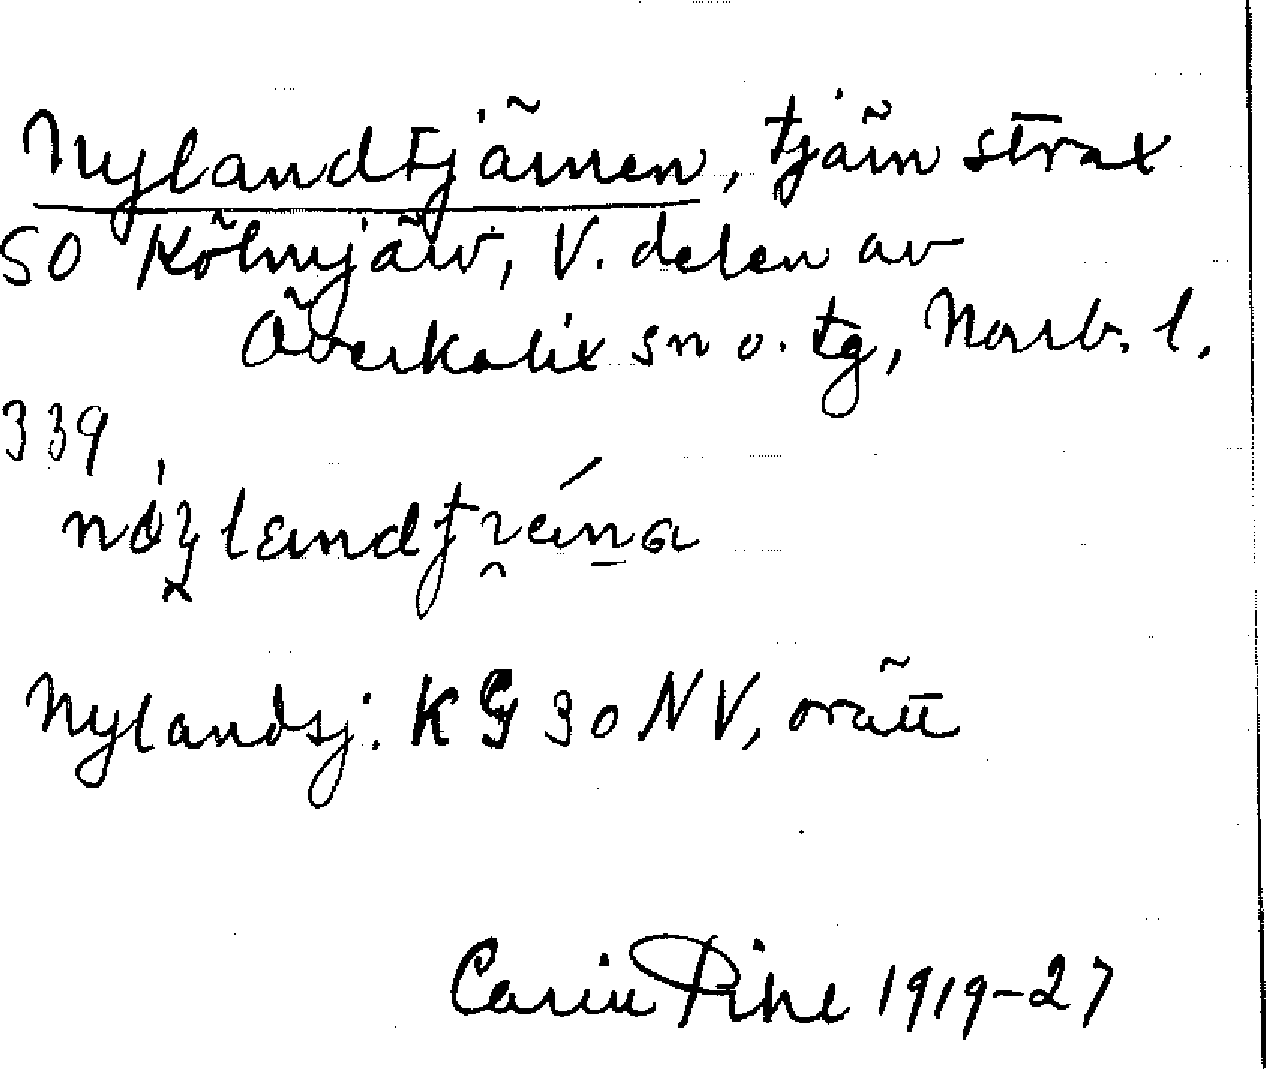 Nylandtjärnen, tjärn strax
SO Kölmjärv, V. delen av
Överkalix sn o. tg, Norrb. l.
339
Nylandsj: KG 30 NV, orätt
Carin Pihl 1919-27